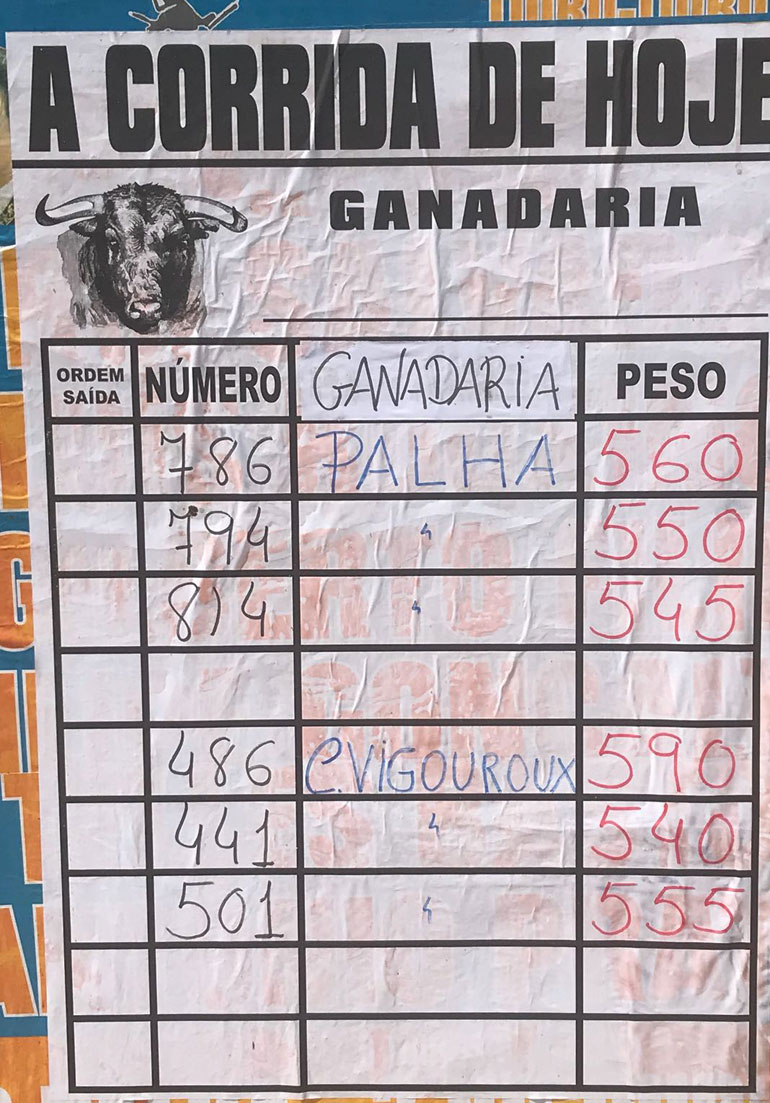 A CORRIDA DE HOJE
GANADARIA
ORDEM SAÍDA NÚMERO GANADARIA PESO
786 PALHA 560
794 " 550
814 " 545
486 C. VIGOUROUX 590
441 " 540
501 " 555